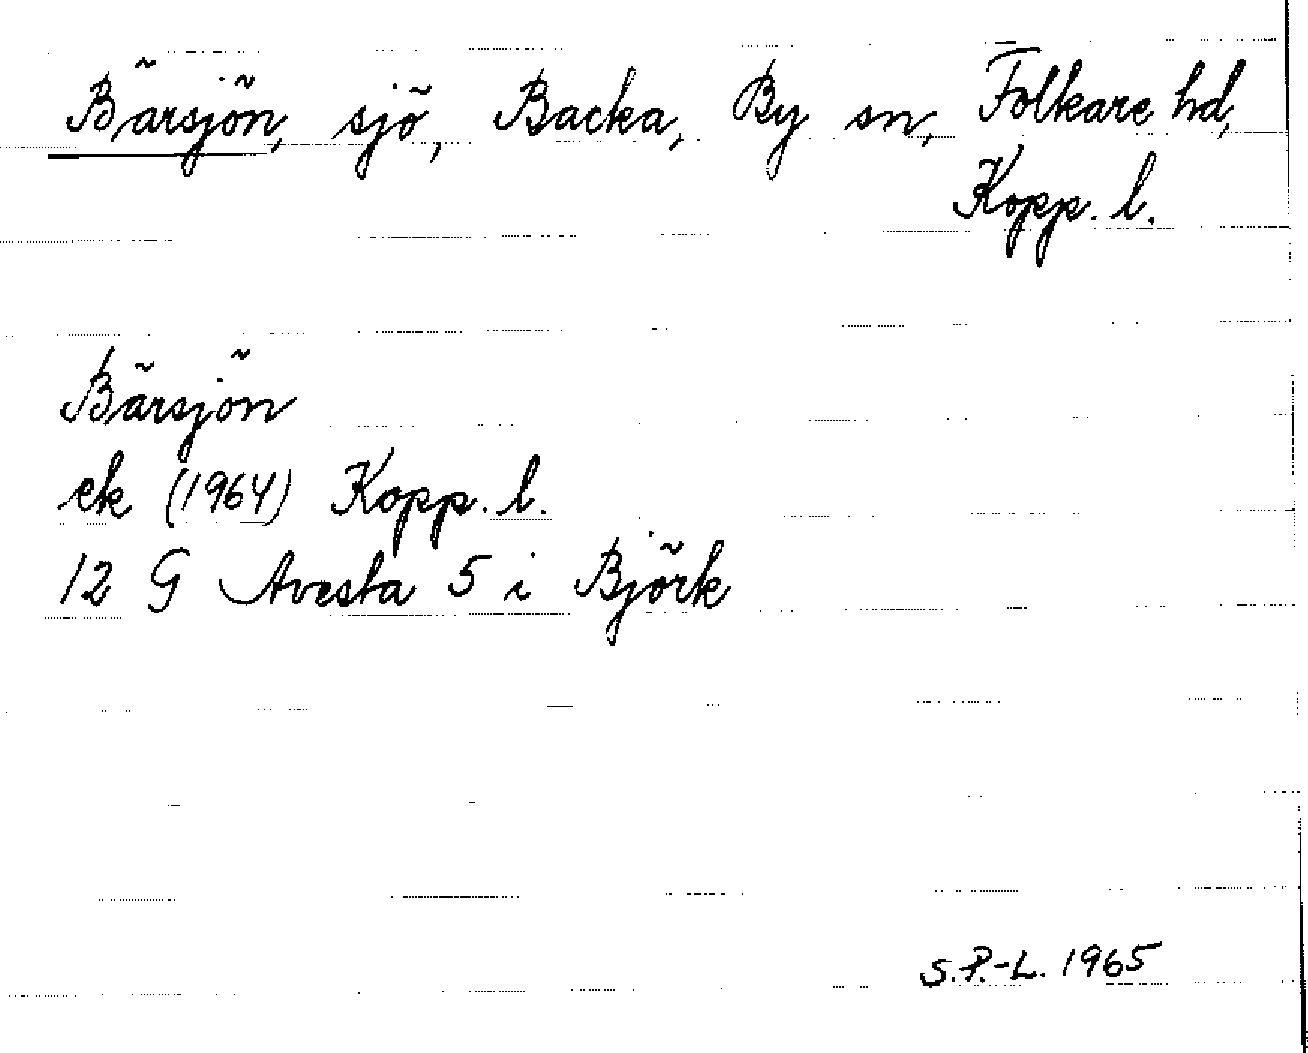 Bärsjön, sjö, Backa, By sn, Folkare hd,
Kopp. l.
Bärsjön
ek (1964) Kopp. l.
12 G Avesta 5 i Björk
S.P.-L. 1965